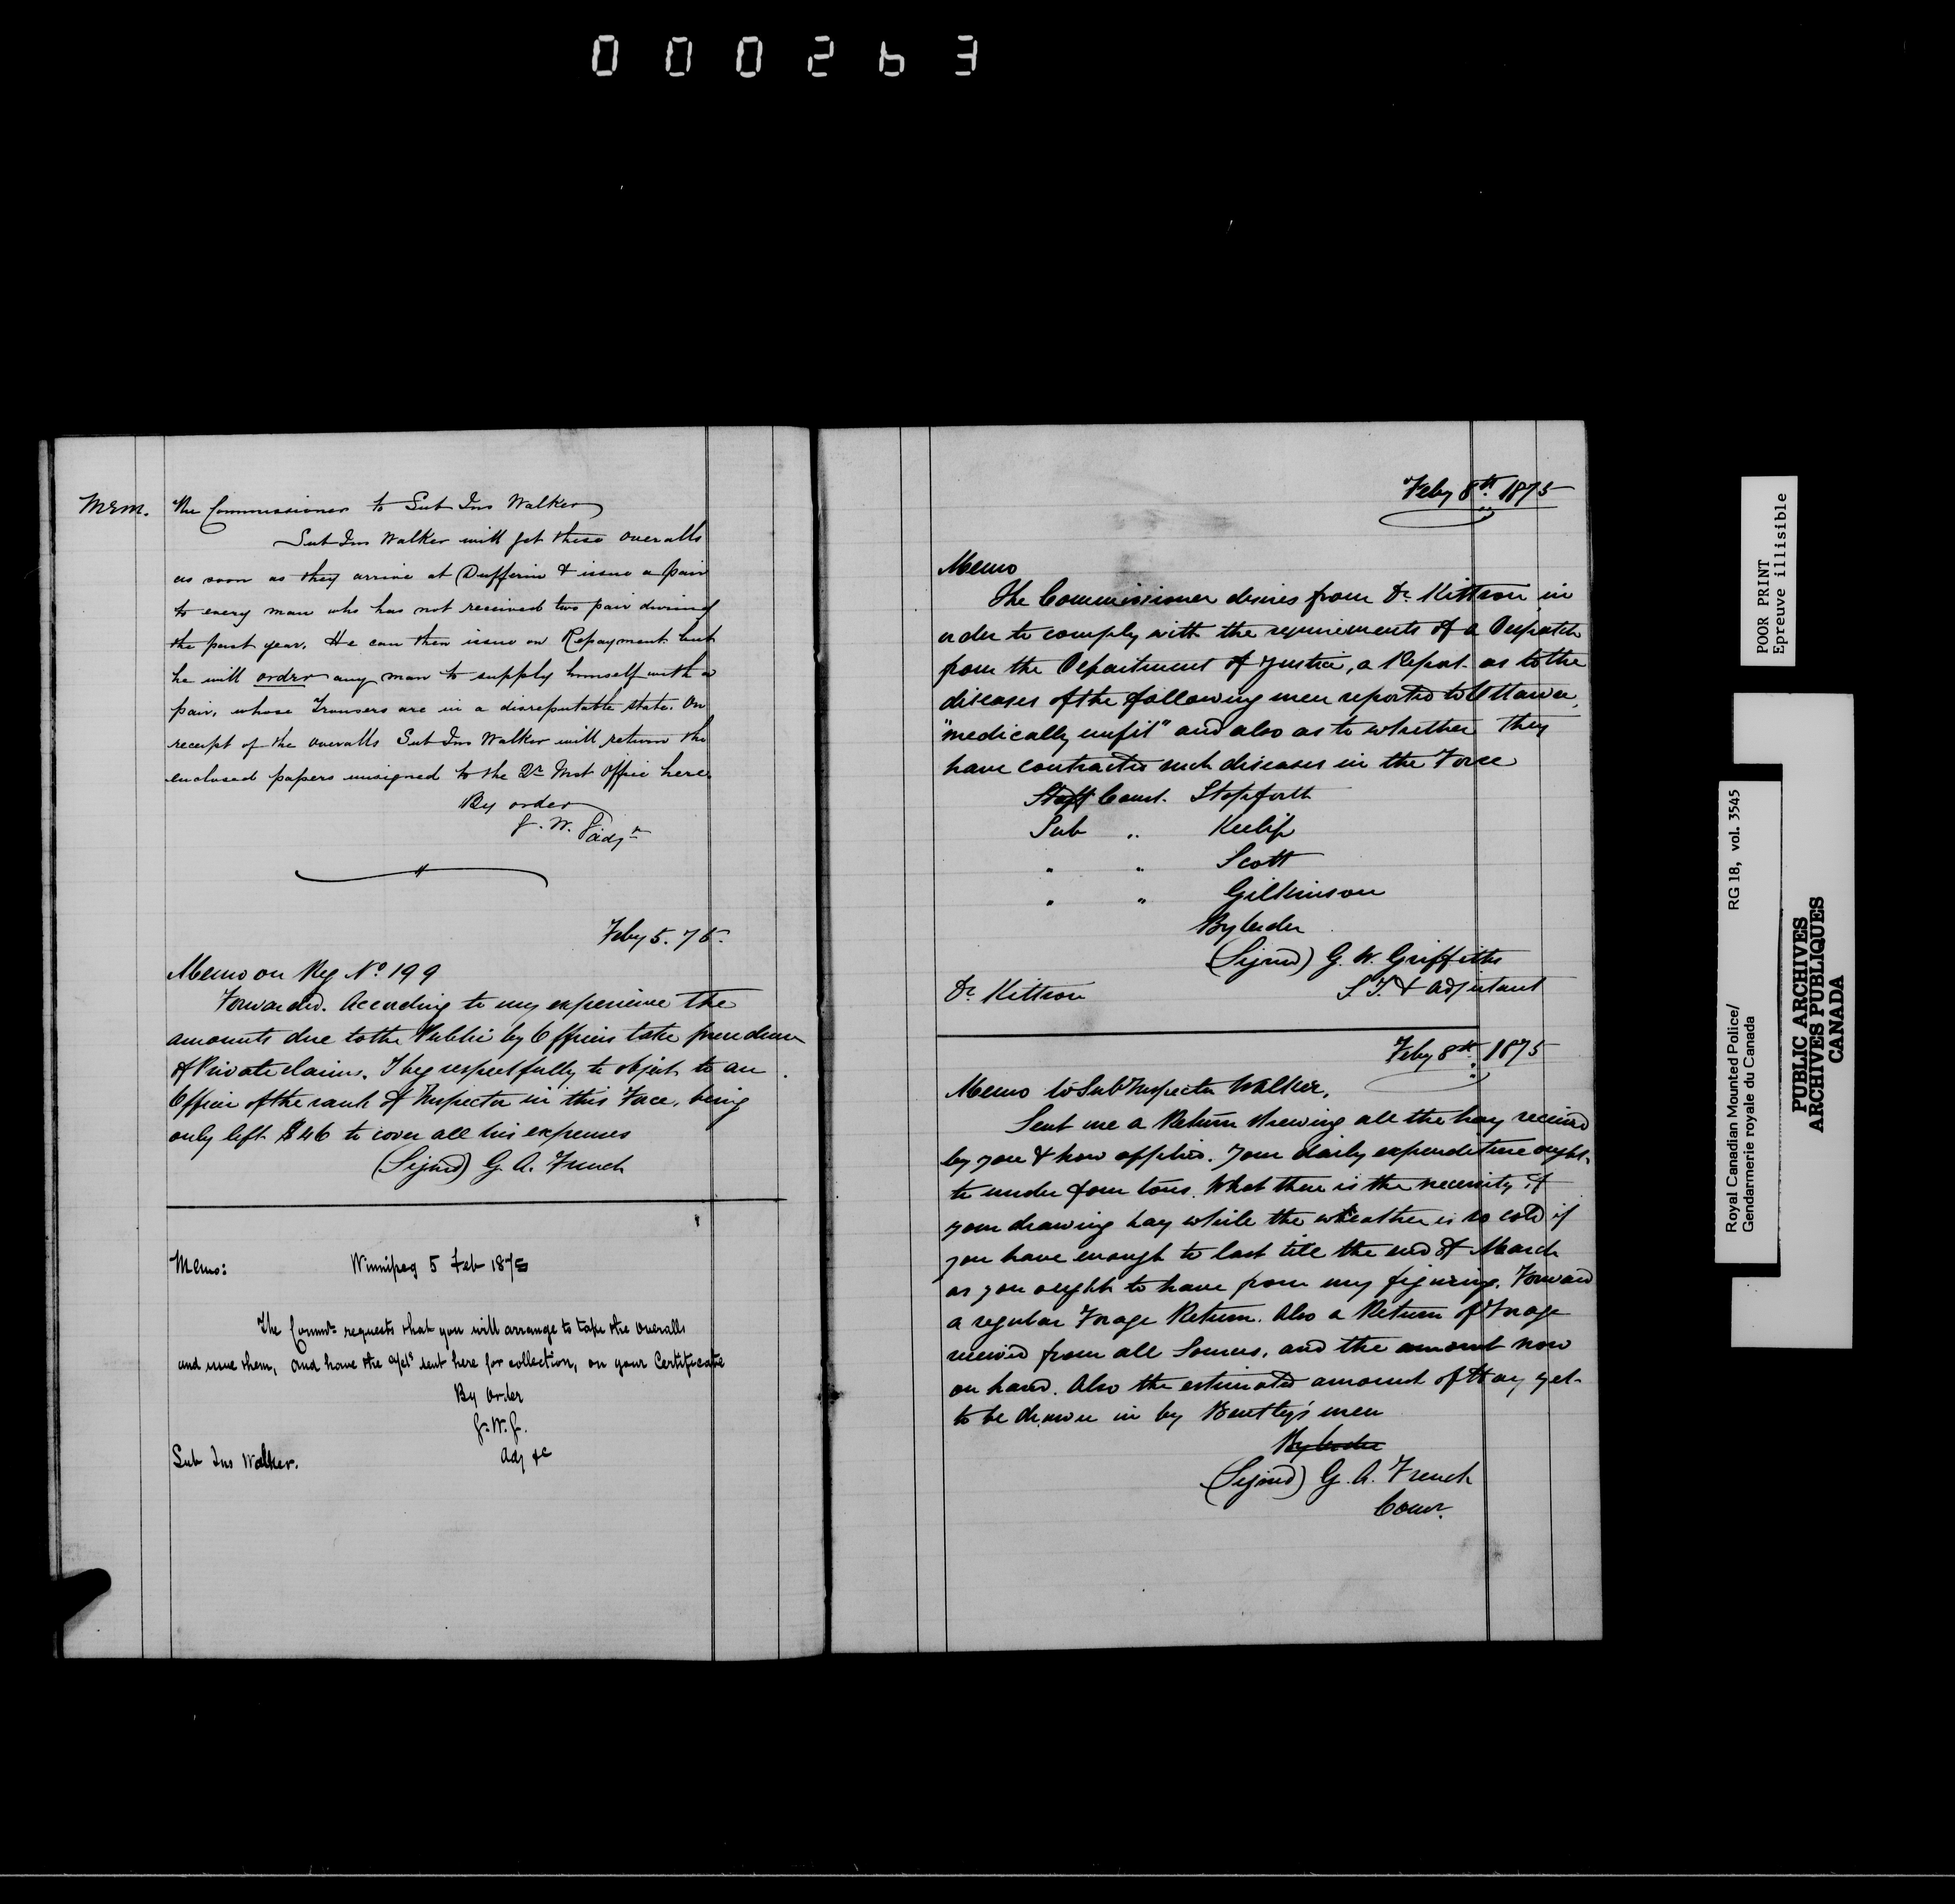 000263
Mem. The Commissioner to Sub Ins Walker
Sub Ins Walker will get these overalls
as soon as they arrive at Dufferin & issue a pair
to every man who has not received two pair during
the past year. He can then issue on Repayment but
he will order any man to supply himself with a
pair, whose Trousers are in a disreputable state. On
receipt of the overalls Sub Ins Walker will return the
enclosed papers unsigned to the Qr Mst Office here
By order
G. W. G adjr
Feby 5. 75.
Memo on Reg No 199
Forwarded. According to my experience the
amounts due to the Public by Officers take precedence
of Private claims. I beg respectfully to object to an
Officer of the rank of Inspector in this Force, being
only left $46 to cover all his expenses
(Signed) G. A. French
Memo: Winnipeg 5 Feb 1875
The Commr requests that you will arrange to take the overalls
and issue them, and have the a/cts sent here for collection, on your Certificate
By Order
G. W. G.
Adj &c
Sub Ins Walker.
Feby 8th 1875
Memo
The Commissioner desires from Dr Kittson in
order to comply with the requirements of a Despatch
from the Department of Justice, a Report as to the
diseases of the following men reported to Ottawa,
"medically unfit" and also as to whether they
have contracted such diseases in the Force
Staff Const. Stopforth
Sub " Keelip
" " Scott
" " Gilkinson
By order
(Signed) G. W. Griffiths
Dr Kittson S.I. & Adjutant
Feby 8th 1875
Memo to Sub Inspector Walker,
Sent me a Return shewing all the hay received
by you & how applied. Your daily expenditure ought
to under four tons. What then is the necessity of
your drawing hay while the wheather is so cold if
you have enough to last till the end of March
as you ought to have from my figuring. Forward
a regular Forage Return. Also a Return of Forage
received from all Sources, and the amount now
on hand. Also the estimated amount of Hay yet
to be drawn in by Bentley's men
By order
(Signed) G. A. French
Comr.
POOR PRINT
Epreuve illisible
Royal Canadian Mounted Police/ RG 18, vol. 3545
Gendarmerie royale du Canada
PUBLIC ARCHIVES
ARCHIVES PUBLIQUES
CANADA